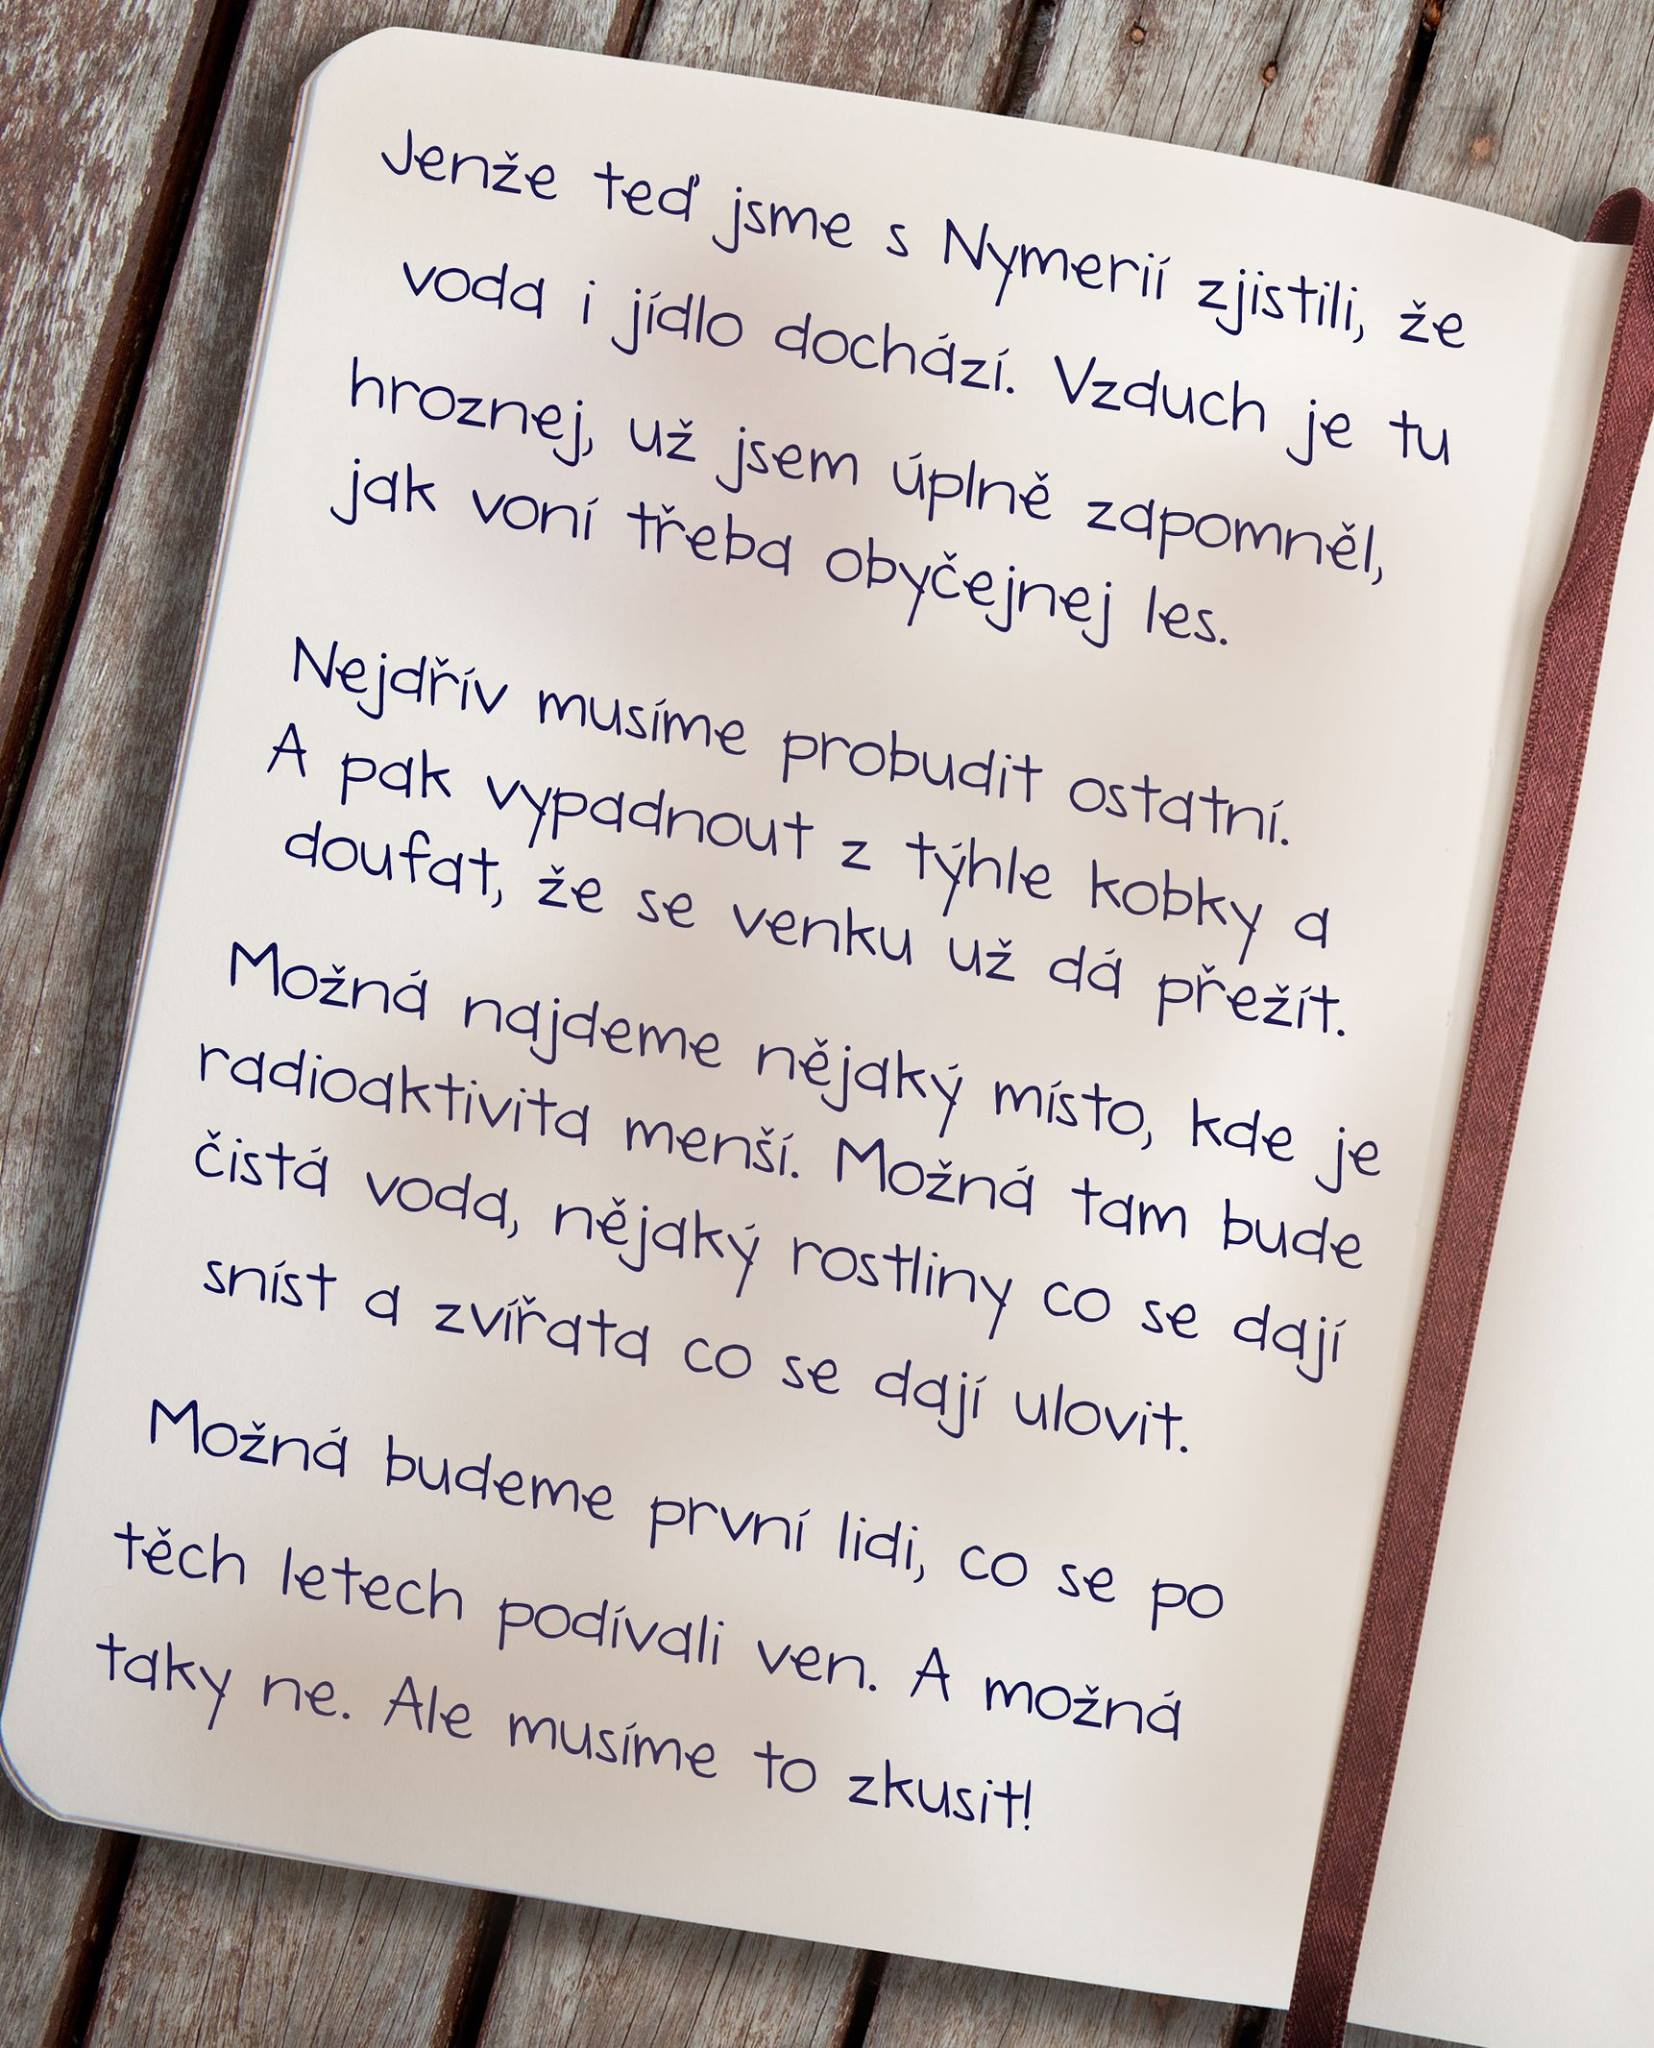 Jenže teď jsme s Nymerií zjistili, že
voda i jídlo dochází. Vzduch je tu
hroznej, už jsem úplně zapomněl,
jak voní třeba obyčejnej les.
Nejdřív musíme probudit ostatní.
A pak vypadnout z týhle kobky a
doufat, že se venku už dá přežít.
Možná najdeme nějaký místo, kde je
radioaktivita menší. Možná tam bude
čistá voda, nějaký rostliny co se dají
sníst a zvířata co se dají ulovit.
Možná budeme první lidi, co se po
těch letech podívali ven. A možná
taky ne. Ale musíme to zkusit!